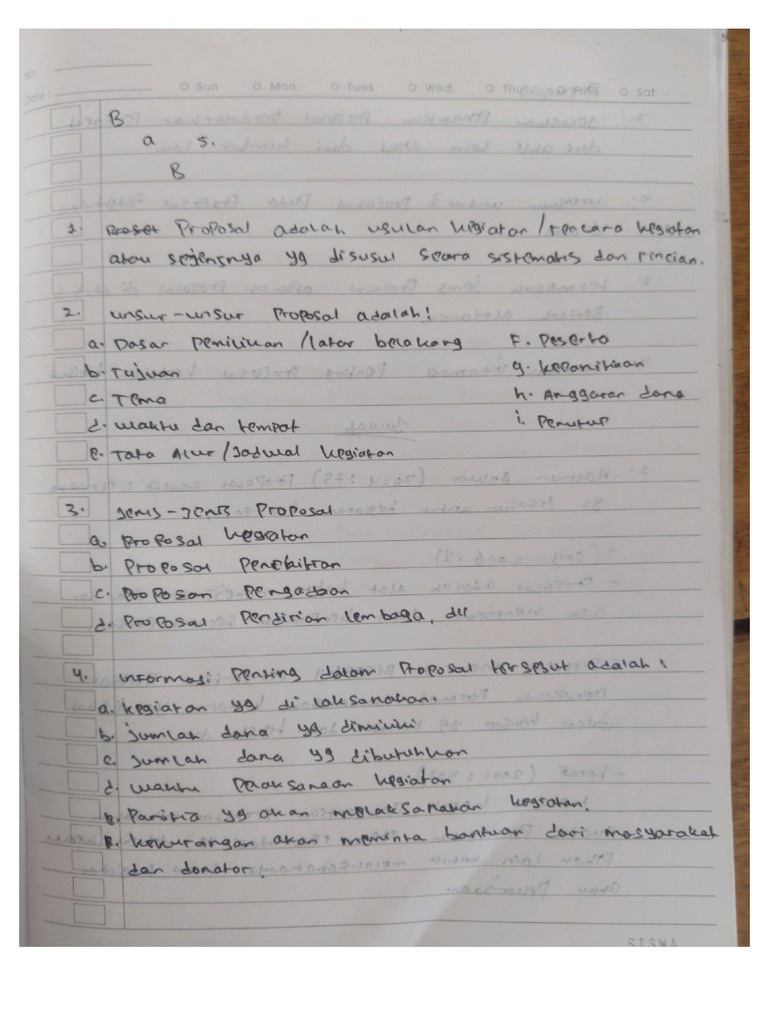 NO :
Date :
Sun Mon Tues Wed Thu Fri Sat
B
a 5.
B
1. Proposal adalah usulan kegiatan/rencara kegiatan
atau sejensnya yg disusul seara sistematis dan rincian.
2. unsur-unsur Proposal adalah!
a. Dasar Pemilikan/latar belakang F. Peserta
b. Tujuan g. kepanitiaan
c. Tema h. Anggaran dana
d. waktu dan tempat i. Penutup
e. Tata Alur/Jadwal kegiatan
3. Jenis-Jenis Proposal
a. Proposal kegiatan
b. Proposal Penelitian
c. Proposan pengadaan
d. Proposal Pendirian lembaga, dll
4. informasi Penting dalam Proposal tersebut adalah:
a. kegiatan yg di laksanakan.
b. jumlah dana yg dimiliki
c. Jumlah dana yg dibutuhkan
d. waktu Pelaksanaan kegiatan
e. Panitia yg akan melaksanakan kegiatan.
F. kekurangan akan meminta bantuan dari masyarakat
dan donator.